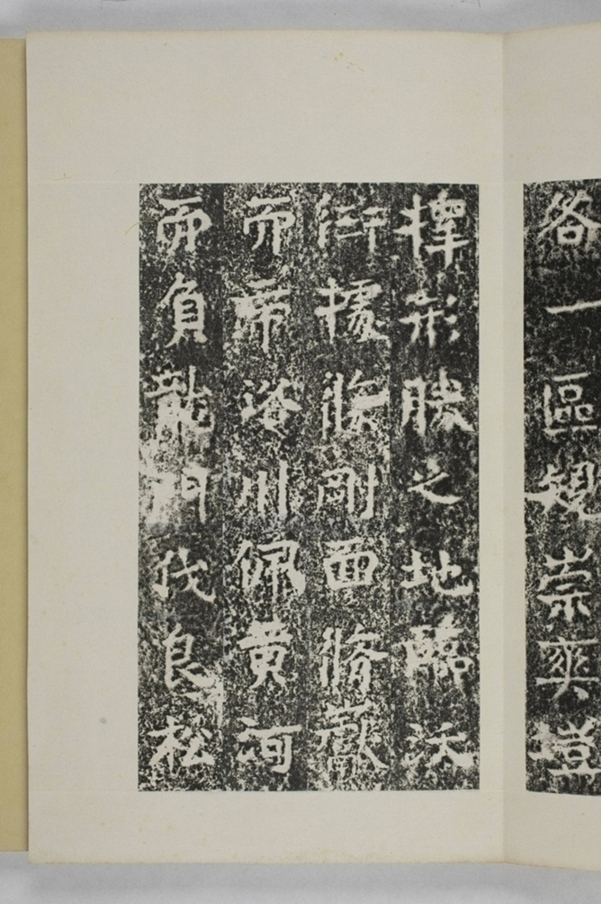 各一區規崇爽塏
擇形勝之地臨沃
衍據條剛面脩巖
而帶洛川佩黃河
而負龍門伐良松